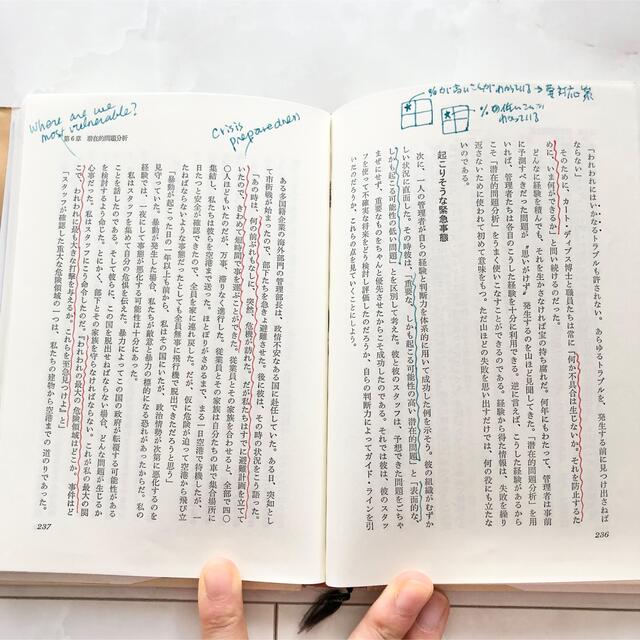 「われわれにはいかなるトラブルも許されない。あらゆるトラブルを、発生する前に見つけ出さねば
ならない」
そのために、カート・ディブス博士と職員たちは常に「何か不具合は生じないか。それを防止するた
めに、いま何ができるか」と問い続けるのだった。
どんなに経験を積んでも、それを生かさなければ宝の持ち腐れだ。何年にもわたって、管理者は事前
に予測すべきだった問題が〝思いがけず〟発生するのを山ほど見聞してきた。「潜在的問題分析」を用
いれば、管理者たちは各自のこうした経験を十分に利用できる。逆に言えば、こうした経験があるから
こそ「潜在的問題分析」をうまく使いこなすことができるのである。経験から得た情報は、失敗を繰り
返さないために使われて初めて意味をもつ。ただ山ほどの失敗を思い出すだけでは、何の役にも立たな
いのである。
起こりそうな緊急事態
次に、一人の管理者が自らの経験と判断力を体系的に用いて成功した例を示そう。彼の組織がむずか
しい状況に直面した。その時彼は、「重要な、しかも起こる可能性の高い潜在的問題」と「表面的な、
しかも起こる可能性の低い問題」とを区別して考えた。彼と彼のスタッフは、予想できた問題をごちゃ
まぜにせず、重要なものをちゃんと優先させたからこそ成功したのである。それでは彼は、彼のスタッ
フを使って不確実な将来をどう検討し評価したのだろうか、自らの判断力によってガイド・ラインを引
いたのだろうか、これらの点を見ていくことにしよう。
236
Where are we
most vulnerable?
第6章 潜在的問題分析
Crisis
preparedness
ある多国籍企業の海外部門の管理部長は、政情不安なある国に赴任していた。ある日、突如とし
て市街戦が始まったので、部下たちを急ぎ避難させた。後に彼は、その時の状況をこう語った。
「あの時は、何の前ぶれもなしに、突然、危機が訪れた。だが私たちはすでに避難計画を立てて
いたので、きわめて短時間で事を運ぶことができた。従業員とその家族を合わせると、全部で四〇
〇人ほどもいたのだが、万事、滞りなく進行した。従業員とその家族は自分たちの車で集合場所に
集結し、私たちは彼らを空港まで送った。ほとぼりがさめるまで、まる一日空港で待機したが、一
日たつと安全が確認できたので、全員を家に連れ戻した。だが、仮に危険が迫って空港から飛び立
たねばならないような事態だったとしても全員無事に飛行機で脱出できただろうと思う」
「暴動が起こった日の一年以上も前から、私はその国にいたが、政治情勢が次第に悪化するのを
見守っていた。暴動が発生した場合、私たちが敵意と暴力の標的になる恐れがあったからだ。私の
経験では、一夜にして事態が悪化する可能性は十分にあった。
私はスタッフを集めて自分の危惧を伝えた。暴力によってこの国の政府が転覆する可能性がある
ことを話したのである。そして彼らに、この国を脱出せねばならない場合、どんな問題が生じるか
を検討するよう命じた。とにかく、部下とその家族を守らなければならない。これが私の最大の関
心事だった。私はスタッフにこう命令したのだ。『われわれの最大の危険領域はどこか、事件はど
こで、われわれに最も大きな打撃を与えるか、これらを至急見つけよ』と」
「スタッフが確認した重大な危険領域の一つは、私たちの建物から空港までの道のりであった。
237